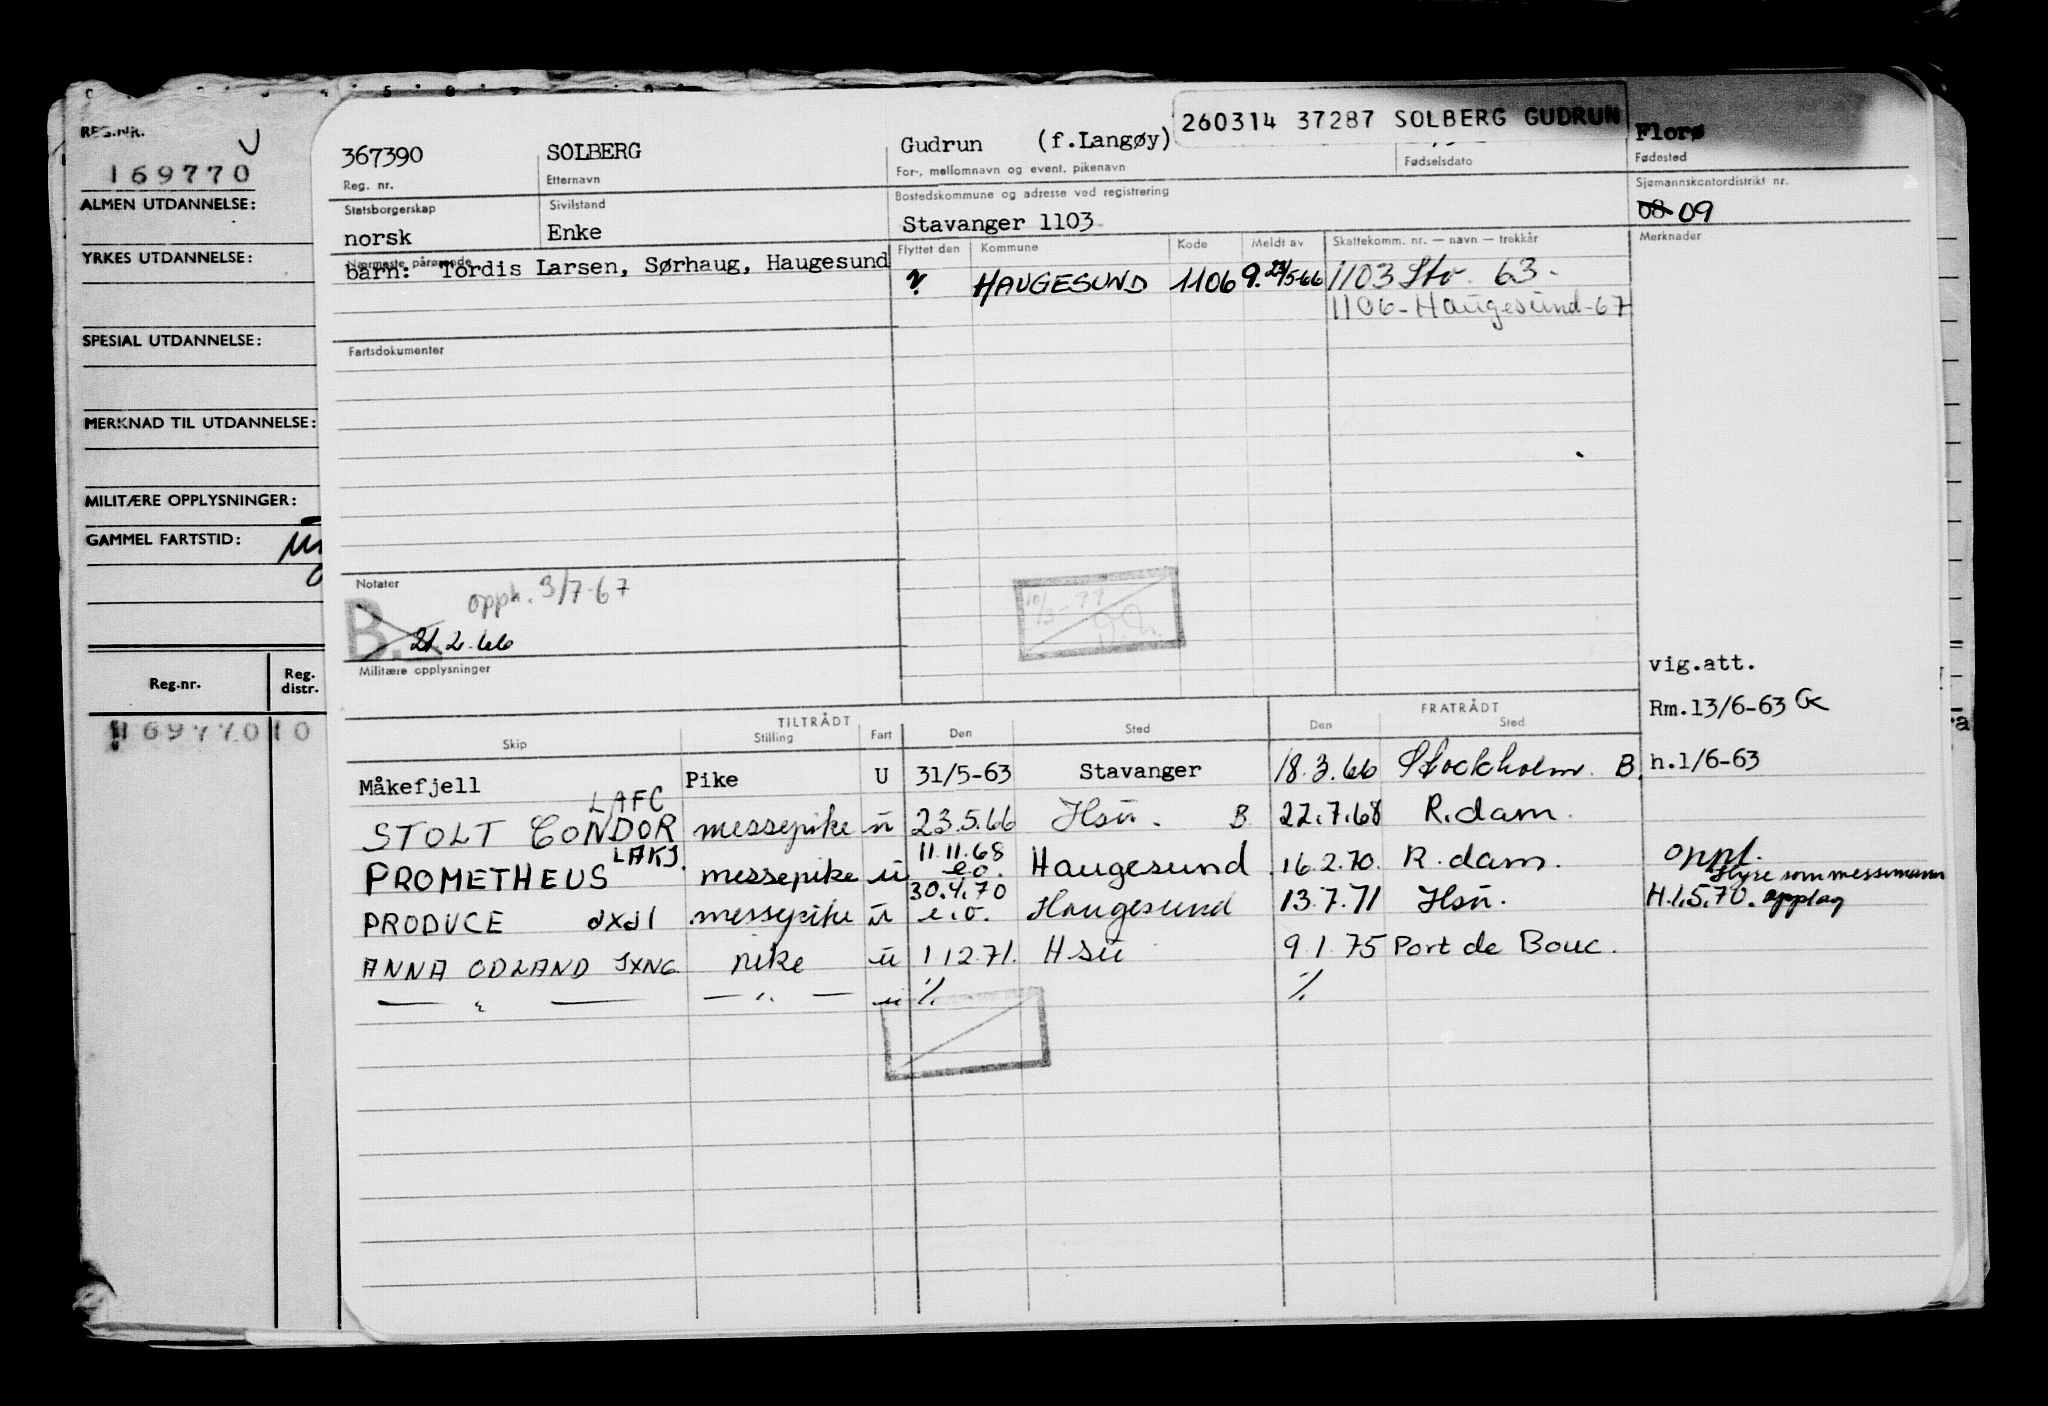 REG.NR.
169770
ALMEN UTDANNELSE:
YRKES UTDANNELSE:
SPESIAL UTDANNELSE:
MERKNAD TIL UTDANNELSE:
MILITÆRE OPPLYSNINGER:
GAMMEL FARTSTID:
Reg.nr. Reg. distr.
169770 10
260314 37287 SOLBERG GUDRUN
367390 SOLBERG Gudrun (f.Langøy) Florø
Reg. nr. Etternavn For-, mellomnavn og event. pikenavn Fødselsdato Fødested
Statsborgerskap Sivilstand Bostedskommune og adresse ved registrering Sjømannskontordistrikt nr.
norsk Enke Stavanger 1103 08 09
Nærmeste pårørende Flyttet den Kommune Kode Meldt av Skattekomm. nr. — navn — trekkår Merknader
barn: Tordis Larsen, Sørhaug, Haugesund
? HAUGESUND 1106 9. 23/5-66 1103 Stv. 63.
1106-Haugesund-67
Fartsdokumenter
Notater
Opph. 3/7-67
B. 21.2.66
Militære opplysninger
vig.att.
Rm.13/6-63
TILTRÅDT FRATRÅDT
Skip Stilling Fart Den Sted Den Sted
Måkefjell Pike U 31/5-63 Stavanger 18.3.66 Stockholm. B. h.1/6-63
STOLT CONDOR LAFC messepike u 23.5.66 Hsu. B 22.7.68 R.dam.
PROMETHEUS LAKJ. messepike u 11.11.68 e.o. Haugesund 16.2.70. R.dam. oppl.
PRODUCE JXJI messepike u 30.4.70 e.o. Haugesund 13.7.71 Hsu. Hyre som messemann H.1.5.70. opplag
ANNA ODLAND JXNG pike u 1.12.71. Hsu 9.1.75 Port de Bouc.
— " — — " — u % %